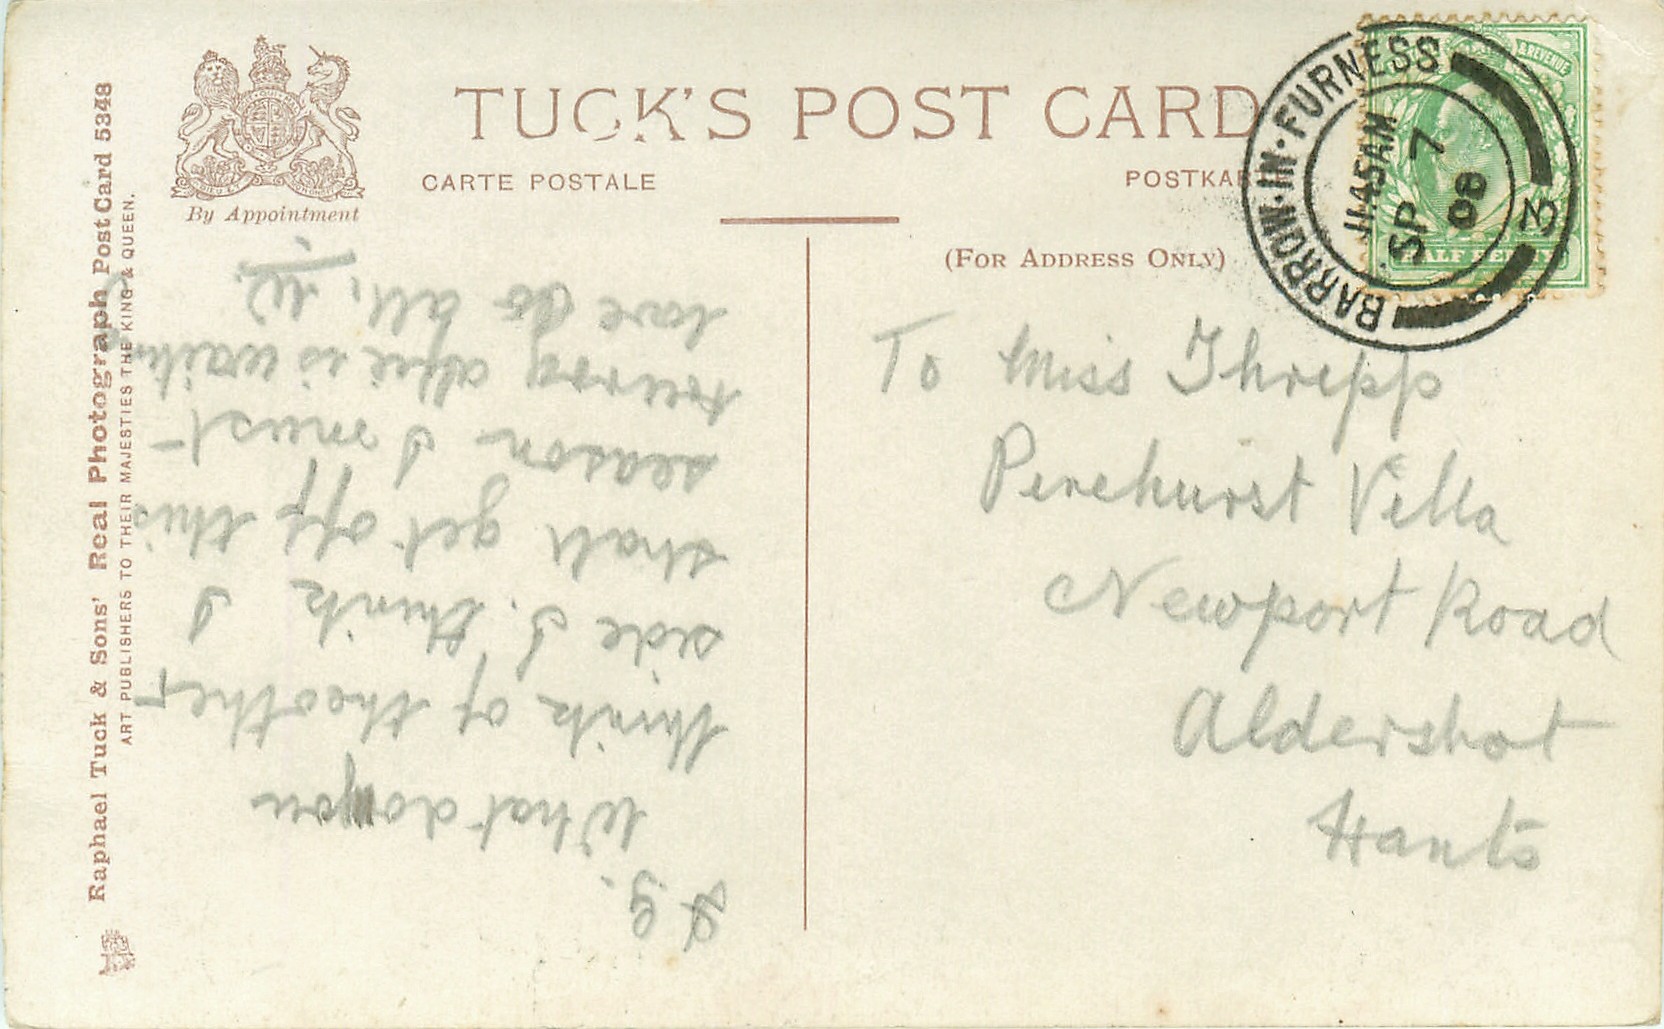 TUCK'S POST CARD
CARTE POSTALE
POSTKAR
By Appointment
(For Address Only)
BARROW-IN-FURNESS
1145AM
SP 7
08
3
& REVENUE
HALF PENNY
To Miss Threpp
Penehurst Villa
Newport Road
Aldershot
Hants
What do you
think of the other
side I. think I
shall get off this
season I must
hurry Alfie is waitin
love to all. W.
Raphael Tuck & Sons' Real Photograph Post Card 5348
ART PUBLISHERS TO THEIR MAJESTIES THE KING & QUEEN.